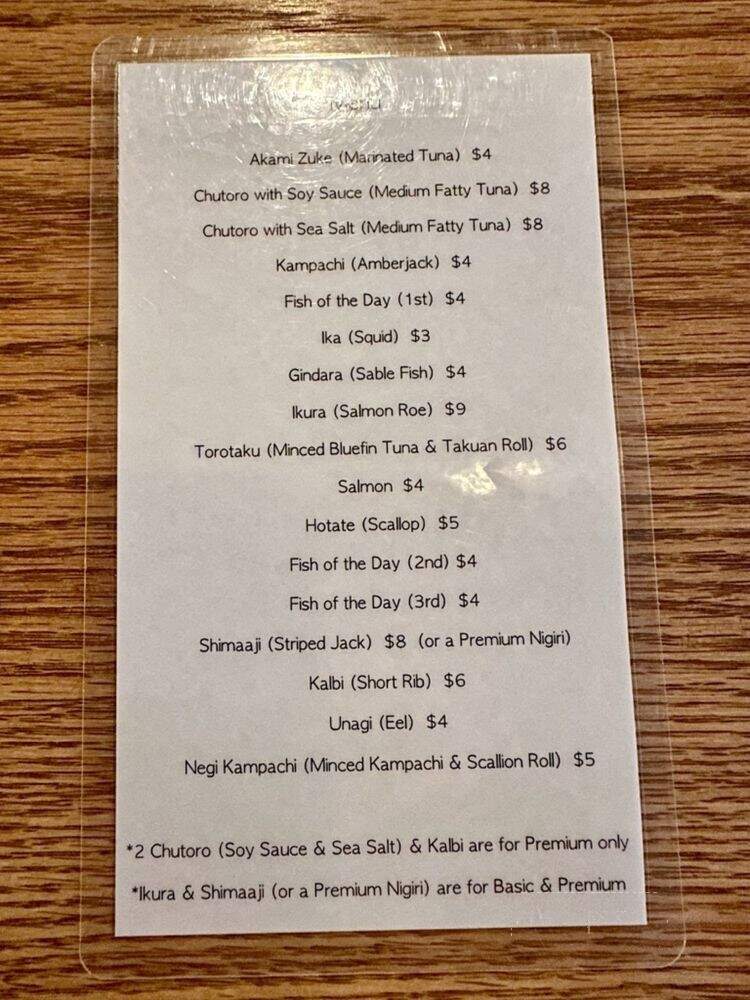 Akami Zuke (Marinated Tuna) $4
Chutoro with Soy Sauce (Medium Fatty Tuna) $8
Chutoro with Sea Salt (Medium Fatty Tuna) $8
Kampachi (Amberjack) $4
Fish of the Day (1st) $4
Ika (Squid) $3
Gindara (Sable Fish) $4
Ikura (Salmon Roe) $9
Torotaku (Minced Bluefin Tuna & Takuan Roll) $6
Salmon $4
Hotate (Scallop) $5
Fish of the Day (2nd) $4
Fish of the Day (3rd) $4
Shimaaji (Striped Jack) $8 (or a Premium Nigiri)
Kalbi (Short Rib) $6
Unagi (Eel) $4
Negi Kampachi (Minced Kampachi & Scallion Roll) $5
*2 Chutoro (Soy Sauce & Sea Salt) & Kalbi are for Premium only
*Ikura & Shimaaji (or a Premium Nigiri) are for Basic & Premium